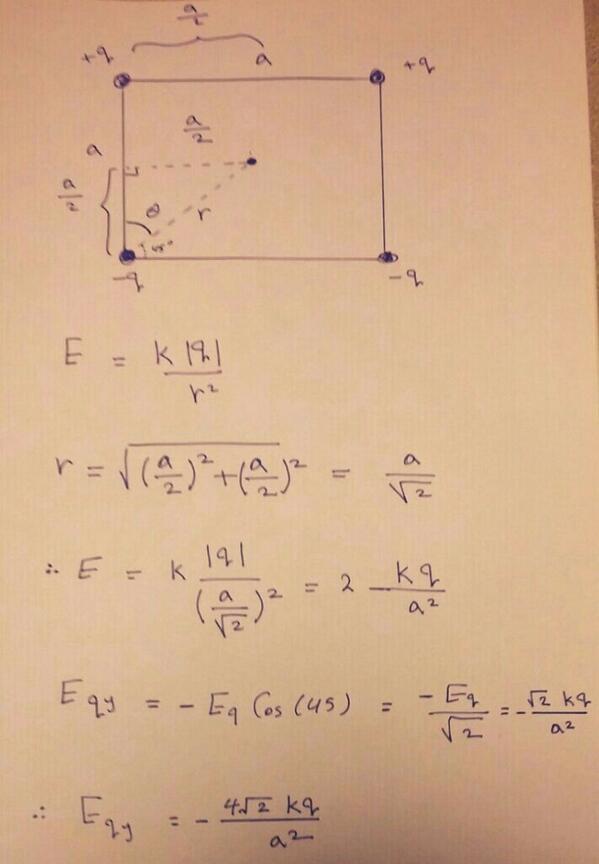 a/2
+q a +q
a a/2
a/2 θ r 45°
-q -q
E = k |q| / r²
r = √((a/2)² + (a/2)²) = a/√2
∴ E = k |q| / (a/√2)² = 2 kq/a²
E qy = - Eq Cos (45) = -Eq/√2 = - √2 kq/a²
∴ E qy = - 4√2 kq / a²